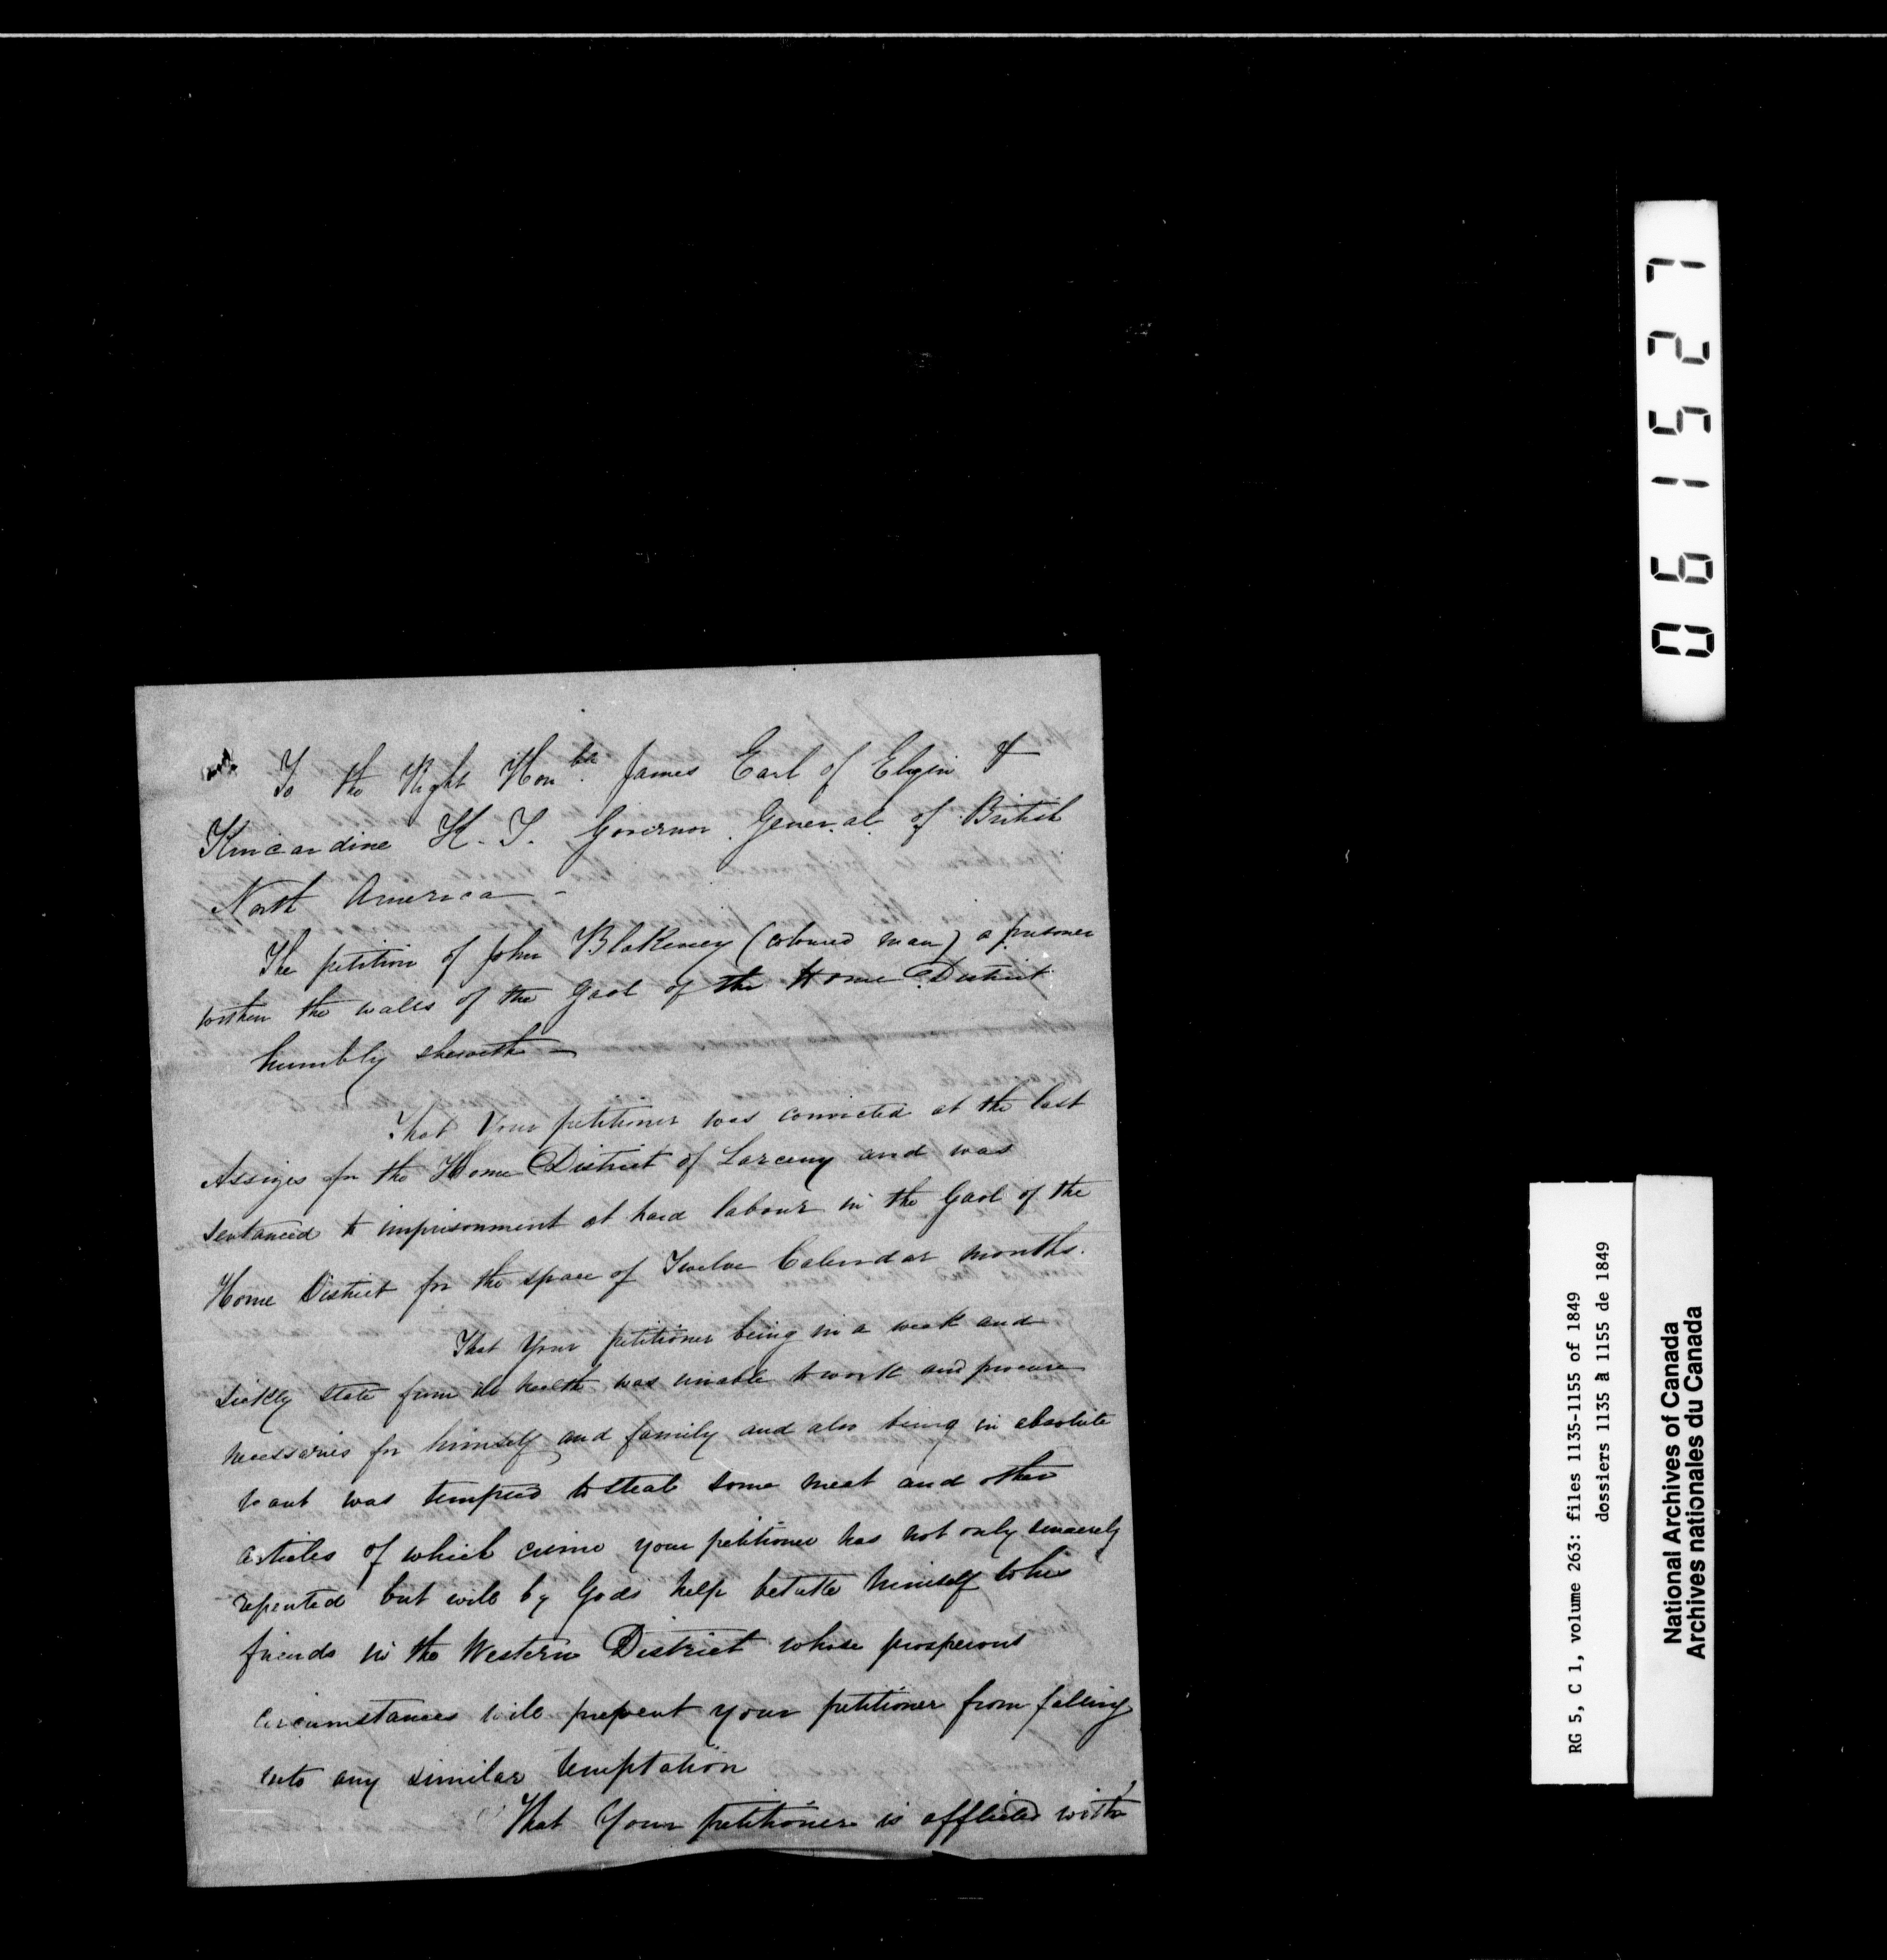 To the Right Honble. James Earl of Elgin &
Kincardine K. T. Governor General of British
North America -
The petition of John Blakeney (coloured man) a prisoner
within the walls of the Gaol of the Home District
humbly sheweth -
That Your petitioner was convicted at the last
Assizes for the Home District of Larceny and was
sentanced to imprisonment at hard labour in the Gaol of the
Home District for the space of Twelve Calendar months.
That Your petitioner being in a weak and
sickly state from ill health was unable to work and procure
necessaries for himself and family and also being in absolute
want was tempted to steal some meat and other
articles of which crime your petitioner has not only sincerely
repented but will by Gods help betake himself to his
friends in the Western District whose prosperous
circumstances will prevent your petitioner from falling
into any similar temptation
That Your petitioner is afflicted with
061527
RG 5, C 1, volume 263: files 1135-1155 of 1849
dossiers 1135 à 1155 de 1849
National Archives of Canada
Archives nationales du Canada